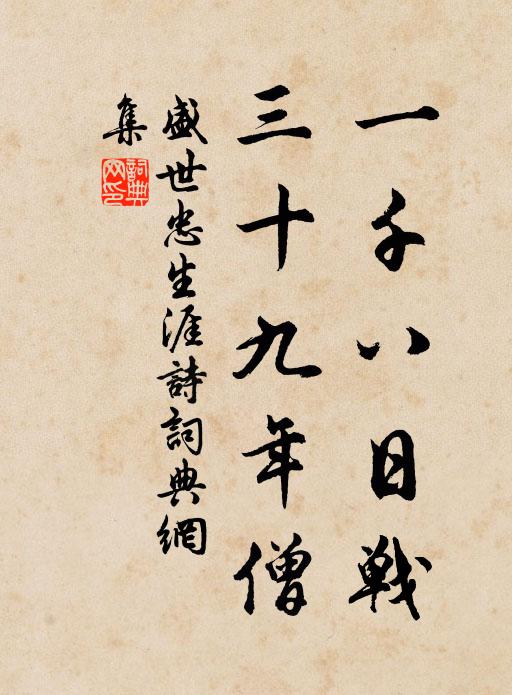 一千八日戰
三十九年僧
盛世忠生涯詩詞典網
集
詞典
网印